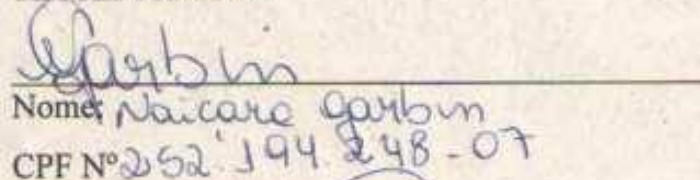 Garbin
Nome: Naicara Garbin
CPF Nº 252.194.248-07